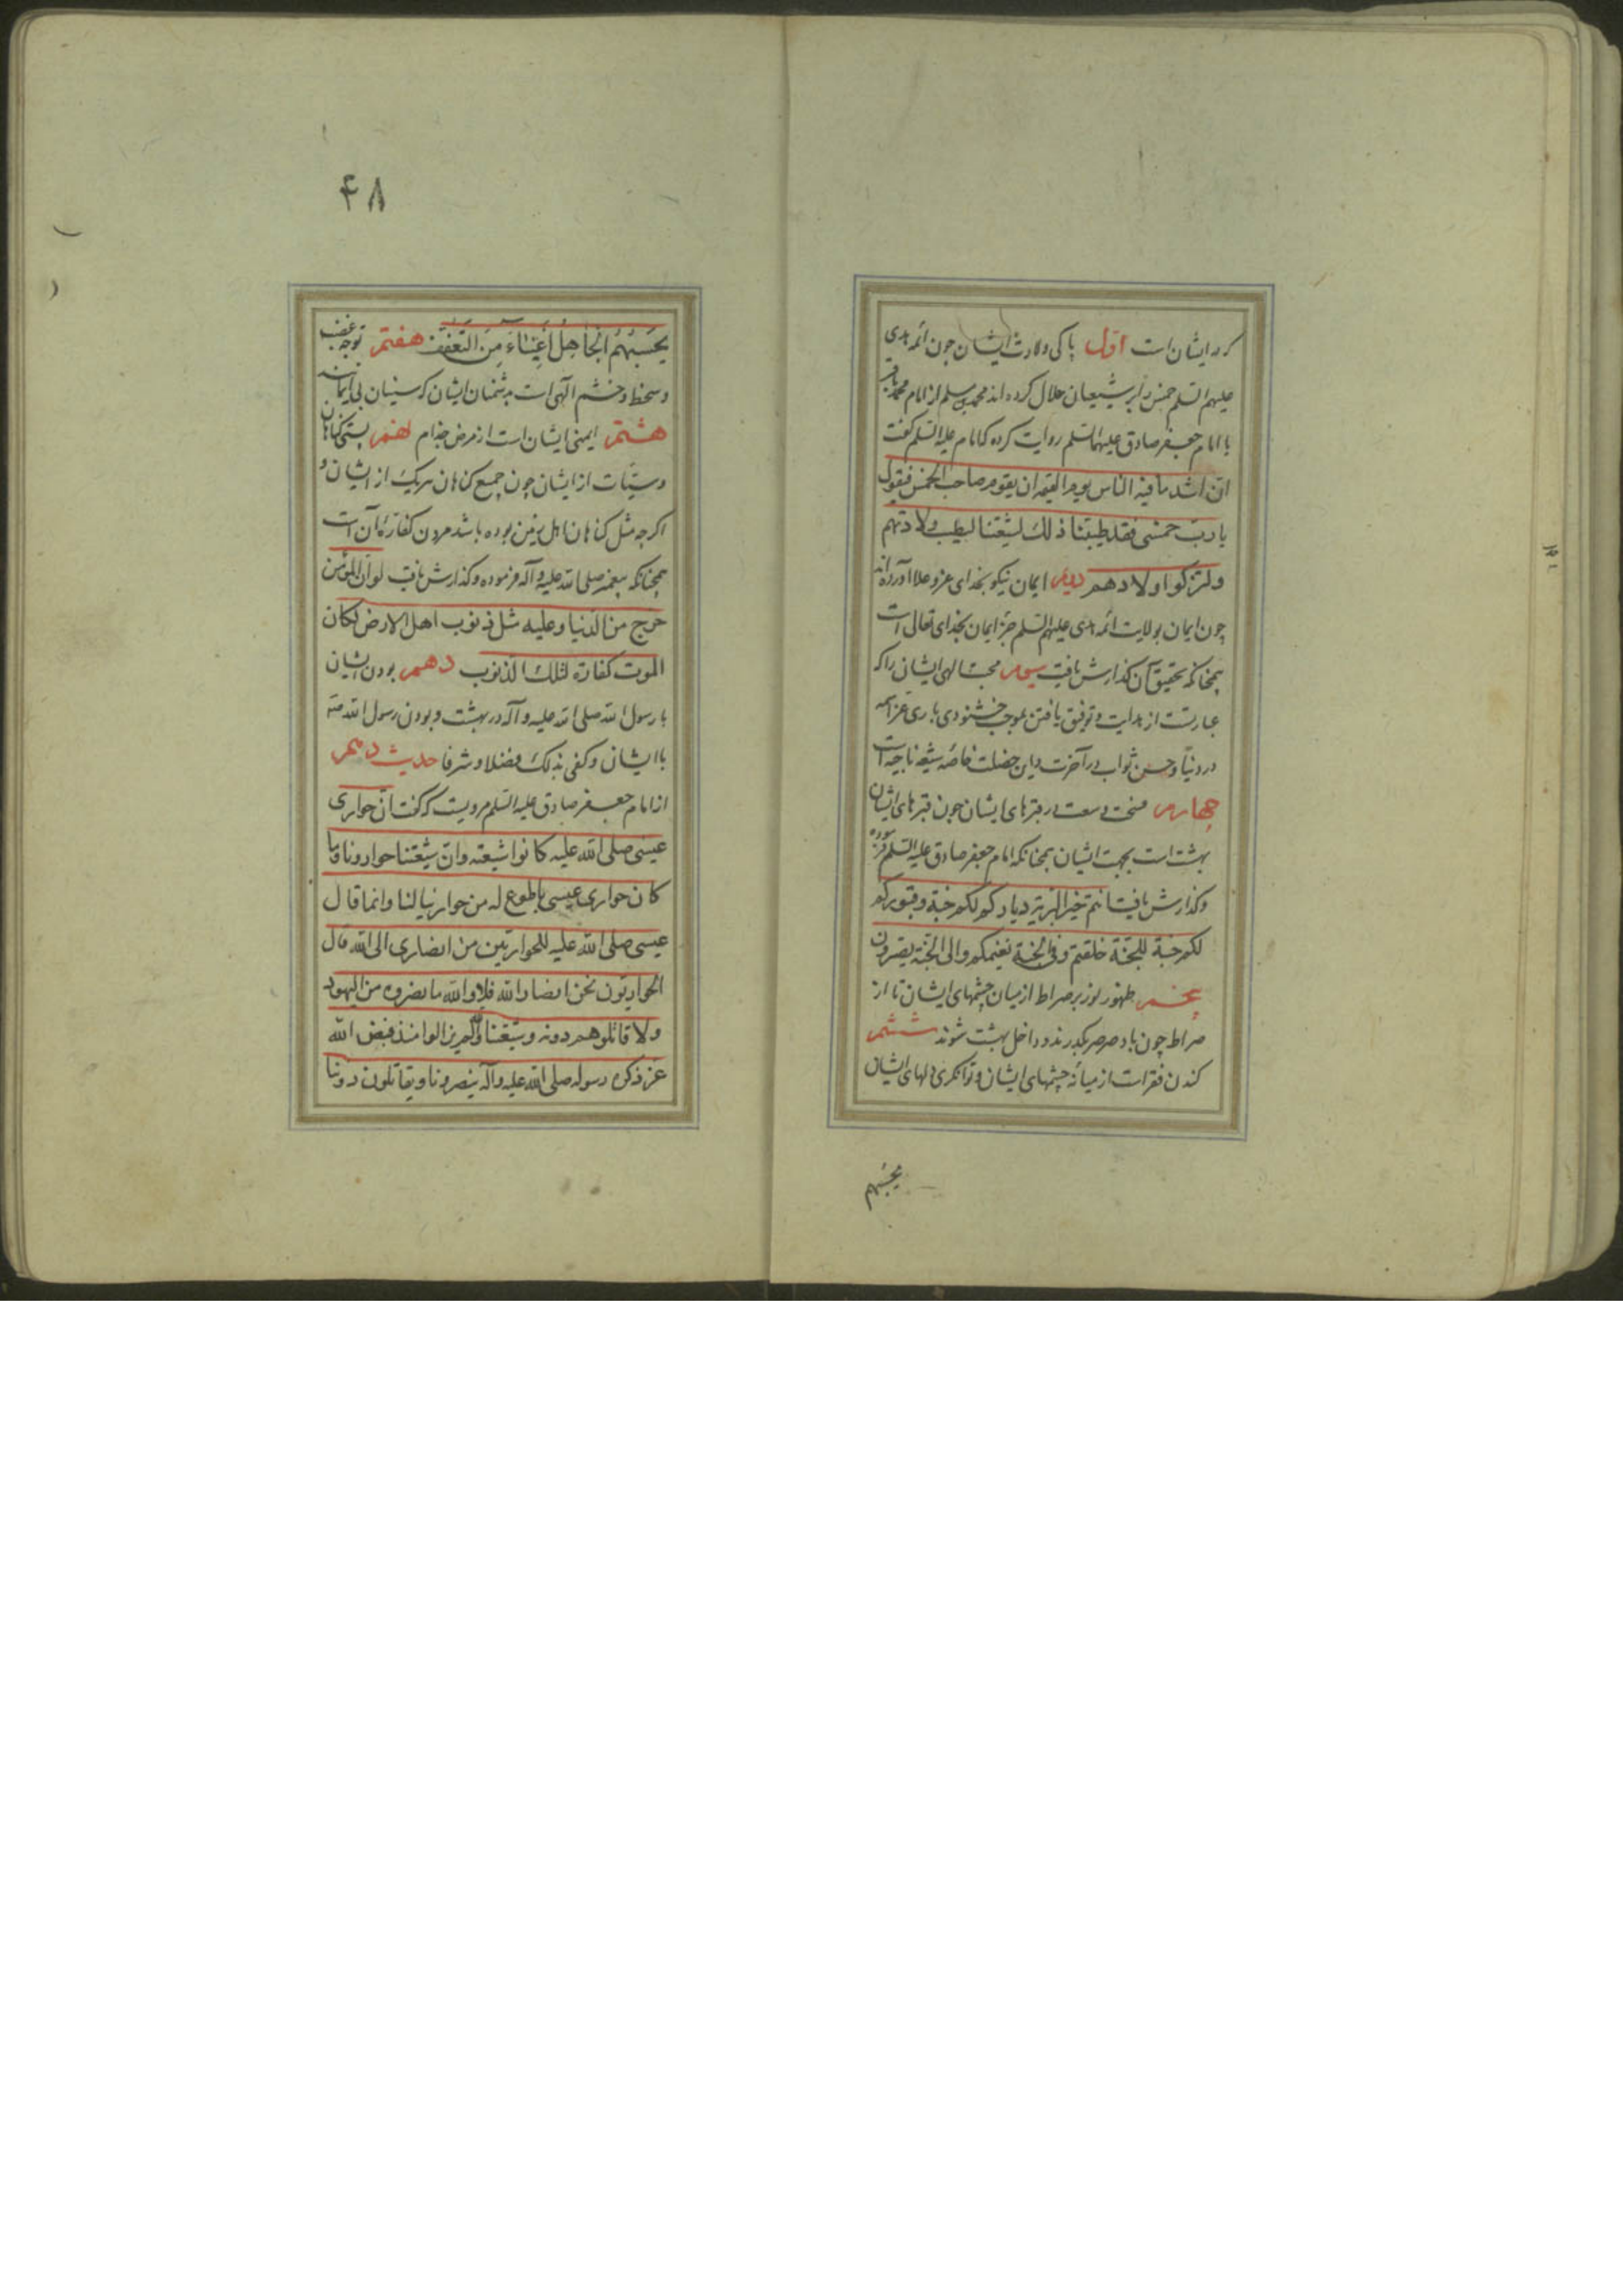 که در ایشان است اول پاکی ولادت ایشان چون ائمه هدی
علیهم السلم خمس را بر شیعیان حلال کرده اند محمد بن مسلم از امام محمد باقر
یا امام جعفر صادق علیهما السلم روایت کرده که امام علیه السلم گفت
ان اشد ما فیه الناس یوم القیمه ان یقوم صاحب الخمس فیقول
یا رب خمسی فقد طیبنا ذلک لشیعتنا لیطیب ولادتهم
ولتزکو اولادهم دویم ایمان نیکو بخدای عز و علا آورده اند
چون ایمان بولایت ائمه هدی علیهم السلم جزء ایمان بخدای تعالی است
همچنانکه تحقیق آن گذارش یافت سیم محبت الهی ایشان را که
عبارتست از هدایت و توفیق یافتن بموجب خشنودی باری عز اسمه
در دنیا و حسن ثواب در آخرت و این خصلت خاصه شیعه ناجیه است
چهارم فسحت و سعت در قبرهای ایشان چون قبرهای ایشان
بهشت است بجهت ایشان همچنانکه امام جعفر صادق علیه السلم فرموده
و گذارش یافت انتم تحیر البریه دیارکم لکم جنة و قبورکم
لکم جنة للجنة خلقتم و فی الجنة نعیمکم و الی الجنة یصیرون
پنجم ظهور نور بر صراط از میان چشمهای ایشان تا از
صراط چون باد صرصر بگذرند و داخل بهشت شوند ششم
کندن فقر است از میانه چشمهای ایشان و توانگری دلهای ایشان
یحسبهم
۴۸
یَحْسَبُهُمُ الْجَاهِلُ أَغْنِيَاءَ مِنَ التَّعَفُّفِ هفتم توجه غضب
و سخط و خشم الهی است بدشمنان ایشان که سنیان بی ایمانند
هشتم ایمنی ایشان است از مرض جذام نهم پستی گناهان
و سیئات از ایشان چون جمیع گناهان هریک از ایشان و
اگرچه مثل گناهان اهل زمین بوده باشد مردن کفاره آن است
همچنانکه پیغمبر صلی الله علیه و آله فرموده و گذارش یافت لو ان المؤمن
خرج من الدنیا و علیه مثل ذنوب اهل الارض لکان
الموت کفارة لتلک الذنوب دهم بودن ایشان
با رسول الله صلی الله علیه و آله در بهشت و بودن رسول الله
با ایشان و کفی بذلک فضلا و شرفا حدیث دهم
از امام جعفر صادق علیه السلم مرویست که گفت ان حواری
عیسی صلی الله علیه کانوا شیعته و ان شیعتنا حواریونا و ما
کان حواری عیسی باطوع له من حوارینا لنا و انما قال
عیسی صلی الله علیه للحواریین من انصاری الی الله قال
الحواریون نحن انصار الله فلا و الله ما نصروه من الیهود
ولا قاتلوهم دونه و شیعتنا والله لم یزالوا منذ قبض الله
عز ذکره رسوله صلی الله علیه و آله ینصرونا و یقاتلون دوننا